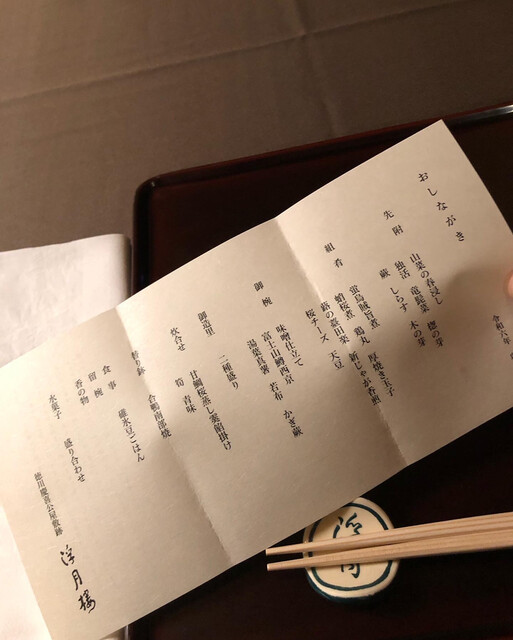 おしながき
令和六年
先附
山菜の春浸し
独活 竜髭菜 楤の芽
蕨 しらす 木の芽
組肴
蛍烏賊旨煮 厚焼き玉子
蛸桜煮 鶏丸 新じゃが香煎
蕗の薹田楽 天豆
桜チーズ
御椀
味噌仕立て
富士山鱒西京 若布 かき蕨
湯葉真薯
御造里
二種盛り
炊合せ
甘鯛桜蒸し 銀餡掛け
筍 青味
替り鉢
合鴨南部焼
食事
碓氷豆ごはん
留椀
香の物
盛り合わせ
水菓子
徳川慶喜公屋敷跡
浮月楼